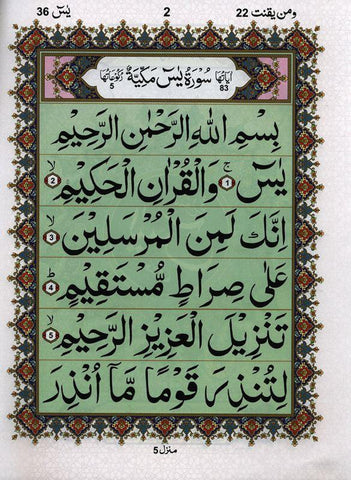 يٰسٓ 36 2 ومن يقنت 22
اٰيَاتُهَا 83 سُوْرَةُ يٰسٓ مَكِّيَّةٌ رُكُوْعَاتُهَا 5
بِسْمِ اللهِ الرَّحْمٰنِ الرَّحِيْمِ
يٰسٓ ۚ 1 وَالْقُرْاٰنِ الْحَكِيْمِ ۙ 2
اِنَّكَ لَمِنَ الْمُرْسَلِيْنَ ۙ 3
عَلٰى صِرَاطٍ مُّسْتَقِيْمٍ ؕ 4
تَنْزِيْلَ الْعَزِيْزِ الرَّحِيْمِ ۙ 5
لِتُنْذِرَ قَوْمًا مَّاۤ اُنْذِرَ
منزل 5